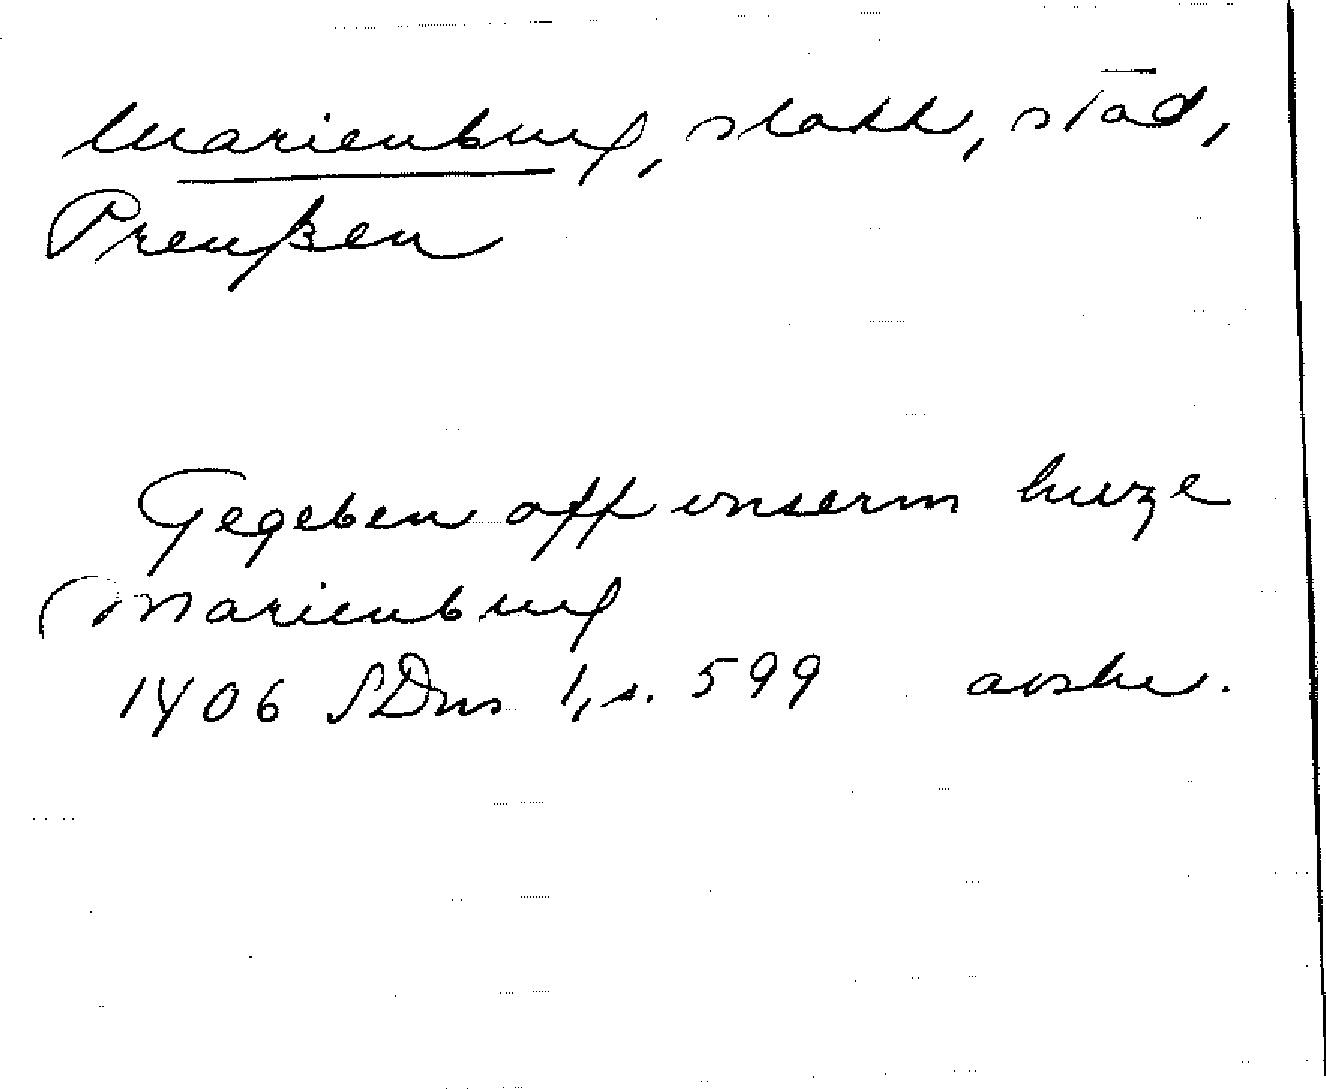 Marienburg, slott, stad,
Preußen
Gegeben off unserm huze
Marienburg
1406 SDns 1, s. 599 avskr.